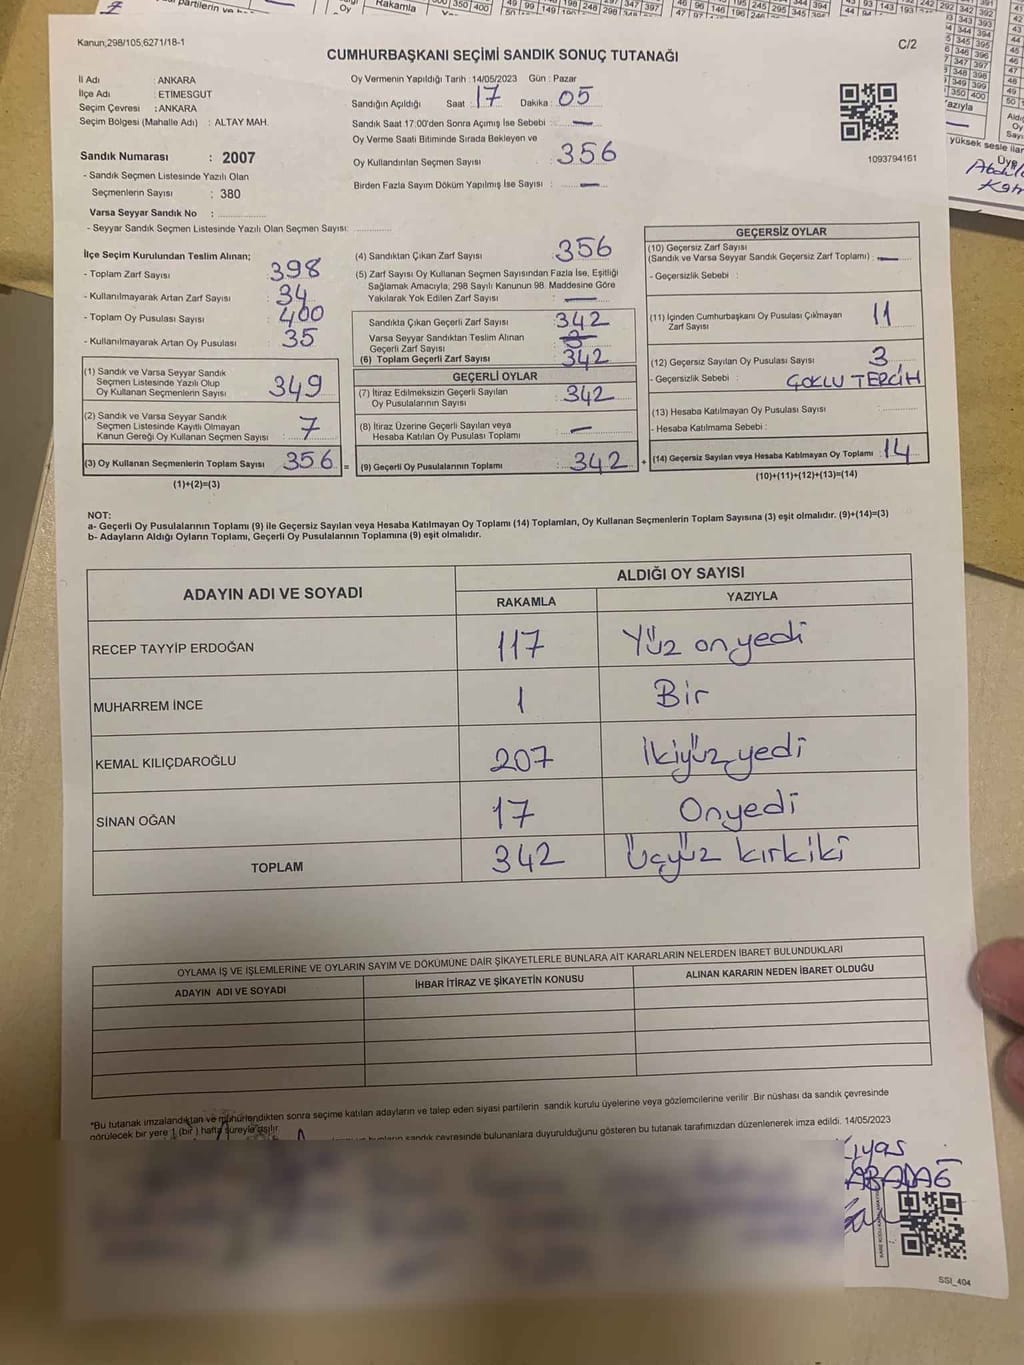 Kanun;298/105,6271/18-1
C/2
CUMHURBAŞKANI SEÇİMİ SANDIK SONUÇ TUTANAĞI
İl Adı : ANKARA
İlçe Adı : ETİMESGUT
Seçim Çevresi : ANKARA
Seçim Bölgesi (Mahalle Adı) : ALTAY MAH.
Sandık Numarası : 2007
- Sandık Seçmen Listesinde Yazılı Olan
Seçmenlerin Sayısı : 380
Varsa Seyyar Sandık No :
- Seyyar Sandık Seçmen Listesinde Yazılı Olan Seçmen Sayısı:
Oy Vermenin Yapıldığı Tarih : 14/05/2023 Gün : Pazar
Sandığın Açıldığı Saat : 17 Dakika : 05
Sandık Saat 17:00'den Sonra Açımış İse Sebebi : —
Oy Verme Saati Bitiminde Sırada Bekleyen ve
Oy Kullandırılan Seçmen Sayısı : 356
Birden Fazla Sayım Döküm Yapılmış İse Sayısı : —
1093794161
İlçe Seçim Kurulundan Teslim Alınan;
- Toplam Zarf Sayısı : 398
- Kullanılmayarak Artan Zarf Sayısı : 34
- Toplam Oy Pusulası Sayısı : 400
- Kullanılmayarak Artan Oy Pusulası : 35
(1) Sandık ve Varsa Seyyar Sandık
Seçmen Listesinde Yazılı Olup
Oy Kullanan Seçmenlerin Sayısı : 349
(2) Sandık ve Varsa Seyyar Sandık
Seçmen Listesinde Kayıtlı Olmayan
Kanun Gereği Oy Kullanan Seçmen Sayısı : 7
(3) Oy Kullanan Seçmenlerin Toplam Sayısı : 356 =
(1)+(2)=(3)
(4) Sandıktan Çıkan Zarf Sayısı : 356
(5) Zarf Sayısı Oy Kullanan Seçmen Sayısından Fazla İse, Eşitliği
Sağlamak Amacıyla, 298 Sayılı Kanunun 98. Maddesine Göre
Yakılarak Yok Edilen Zarf Sayısı : —
Sandıkta Çıkan Geçerli Zarf Sayısı : 342
Varsa Seyyar Sandıktan Teslim Alınan
Geçerli Zarf Sayısı :
(6) Toplam Geçerli Zarf Sayısı : 342
GEÇERLİ OYLAR
(7) İtiraz Edilmeksizin Geçerli Sayılan
Oy Pusulalarının Sayısı : 342
(8) İtiraz Üzerine Geçerli Sayılan veya
Hesaba Katılan Oy Pusulası Toplamı : —
(9) Geçerli Oy Pusulalarının Toplamı : 342 +
GEÇERSİZ OYLAR
(10) Geçersiz Zarf Sayısı
(Sandık ve Varsa Seyyar Sandık Geçersiz Zarf Toplamı) : —
- Geçersizlik Sebebi :
(11) İçinden Cumhurbaşkanı Oy Pusulası Çıkmayan
Zarf Sayısı : 11
(12) Geçersiz Sayılan Oy Pusulası Sayısı : 3
- Geçersizlik Sebebi : ÇOKLU TERCİH
(13) Hesaba Katılmayan Oy Pusulası Sayısı :
- Hesaba Katılmama Sebebi :
(14) Geçersiz Sayılan veya Hesaba Katılmayan Oy Toplamı : 14
(10)+(11)+(12)+(13)=(14)
NOT:
a- Geçerli Oy Pusulalarının Toplamı (9) ile Geçersiz Sayılan veya Hesaba Katılmayan Oy Toplamı (14) Toplamları, Oy Kullanan Seçmenlerin Toplam Sayısına (3) eşit olmalıdır. (9)+(14)=(3)
b- Adayların Aldığı Oyların Toplamı, Geçerli Oy Pusulalarının Toplamına (9) eşit olmalıdır.
ADAYIN ADI VE SOYADI ALDIĞI OY SAYISI
RAKAMLA YAZIYLA
RECEP TAYYİP ERDOĞAN 117 Yüz onyedi
MUHARREM İNCE 1 Bir
KEMAL KILIÇDAROĞLU 207 İkiyüz yedi
SİNAN OĞAN 17 Onyedi
TOPLAM 342 Üçyüz kırkiki
OYLAMA İŞ VE İŞLEMLERİNE VE OYLARIN SAYIM VE DÖKÜMÜNE DAİR ŞİKAYETLERLE BUNLARA AİT KARARLARIN NELERDEN İBARET BULUNDUKLARI
ADAYIN ADI VE SOYADI İHBAR İTİRAZ VE ŞİKAYETİN KONUSU ALINAN KARARIN NEDEN İBARET OLDUĞU
*Bu tutanak imzalandıktan ve mühürlendikten sonra seçime katılan adayların ve talep eden siyasi partilerin sandık kurulu üyelerine veya gözlemcilerine verilir. Bir nüshası da sandık çevresinde
görülecek bir yere 1 (bir) hafta süreyle asılır.
sandık çevresinde bulunanlara duyurulduğunu gösteren bu tutanak tarafımızdan düzenlenerek imza edildi. 14/05/2023
SSI_404